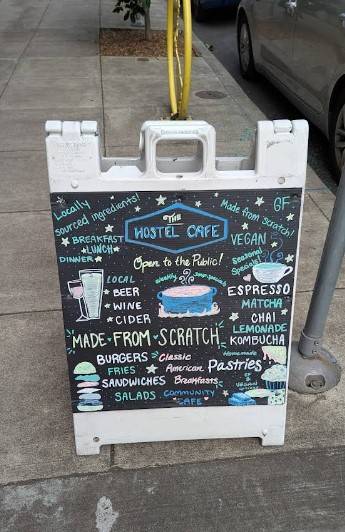 Locally
sourced ingredients!
THE
HOSTEL CAFE
Made from scratch!
GF
BREAKFAST
LUNCH
DINNER
Open to the Public!
VEGAN
Seasonal
Specials!
LOCAL
BEER
WINE
CIDER
Weekly
soup specials
ESPRESSO
MATCHA
CHAI
LEMONADE
KOMBUCHA
MADE FROM SCRATCH
BURGERS
FRIES
SANDWICHES
SALADS
Classic
American
Breakfasts
COMMUNITY
CAFE
Homemade
Pastries
GF &
VEGAN
options